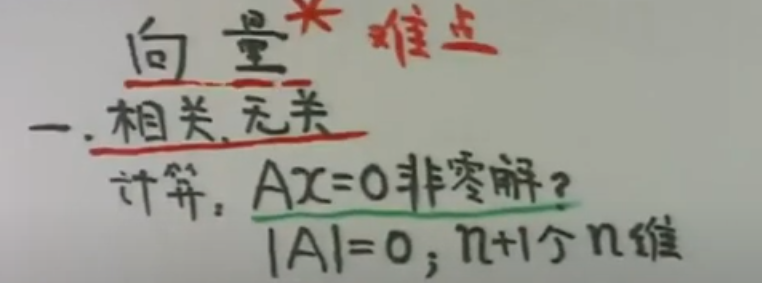 向量* 难点
一.相关.无关
计算:Ax=0非零解?
|A|=0;n+1个n维